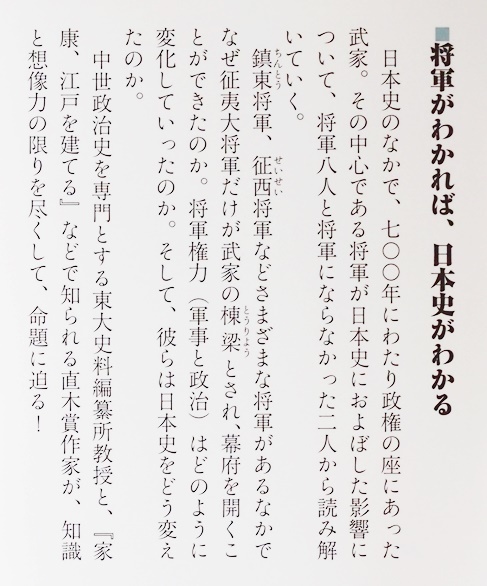 ■将軍がわかれば、日本史がわかる
日本史のなかで、七〇〇年にわたり政権の座にあった
武家。その中心である将軍が日本史におよぼした影響に
ついて、将軍八人と将軍にならなかった二人から読み解
いていく。
鎮東将軍、征西将軍などさまざまな将軍があるなかで
なぜ征夷大将軍だけが武家の棟梁とされ、幕府を開くこ
とができたのか。将軍権力（軍事と政治）はどのように
変化していったのか。そして、彼らは日本史をどう変え
たのか。
中世政治史を専門とする東大史料編纂所教授と、『家
康、江戸を建てる』などで知られる直木賞作家が、知識
と想像力の限りを尽くして、命題に迫る！